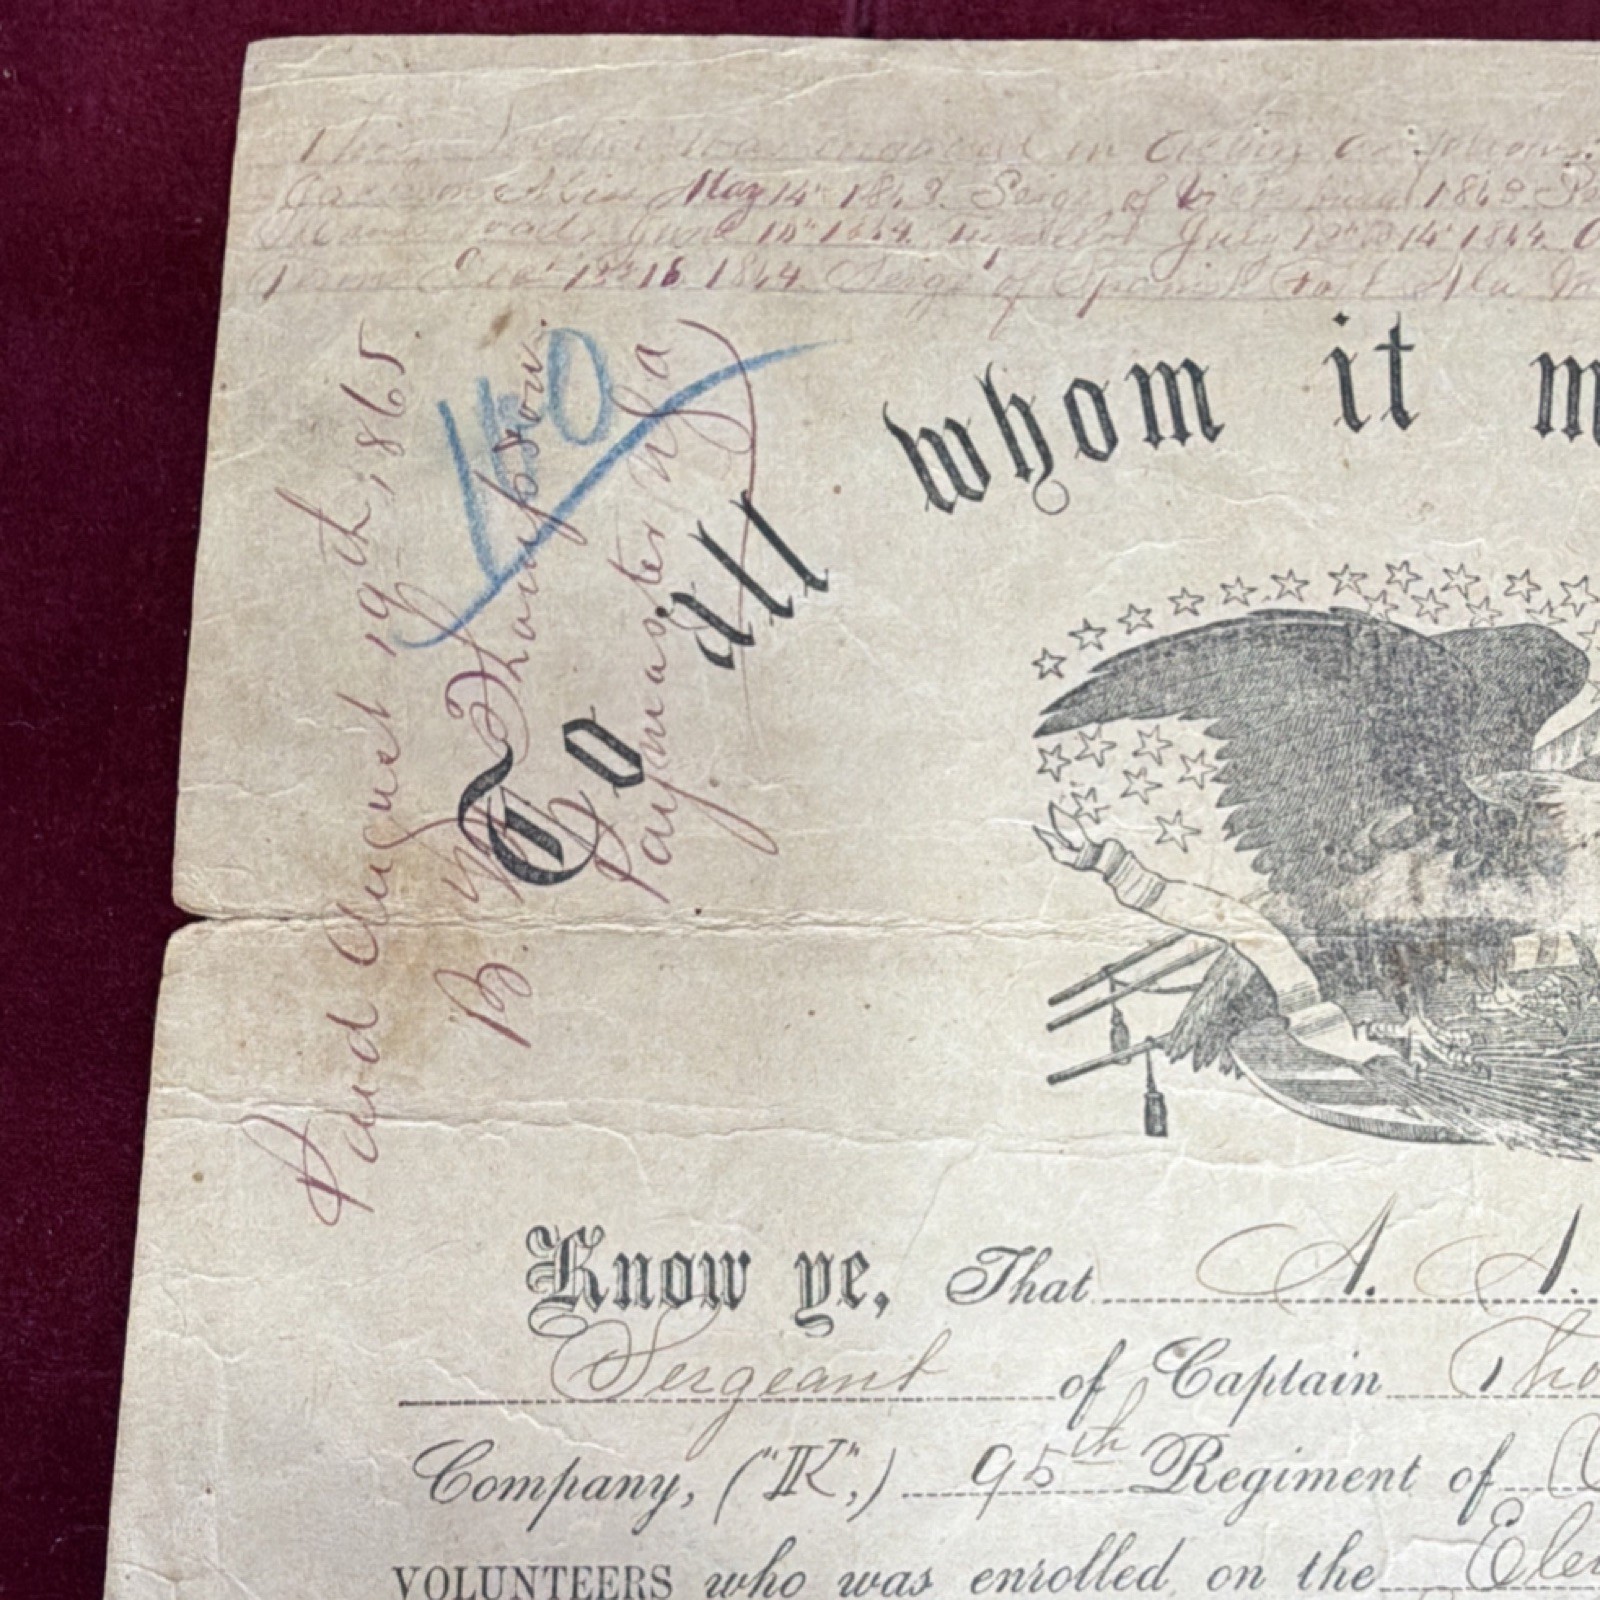 This Soldier was engaged in Action as follows.
Jackson Miss May 14th 1863. Seige of Vicksburg 1863.
Roads June 10th 1864. Tupelo July 13th & 14th 1864.
Dec 15th 16 1864. Seige of Spanish Fort Ala
Paid August 19th, 1865
B. W. Thompson.
Paymaster U.S.a
140
To all whom it m
Know ye, That A. A.
Sergeant of Captain Tho
Company, ("K",) 95th Regiment of O
VOLUNTEERS who was enrolled on the Ele